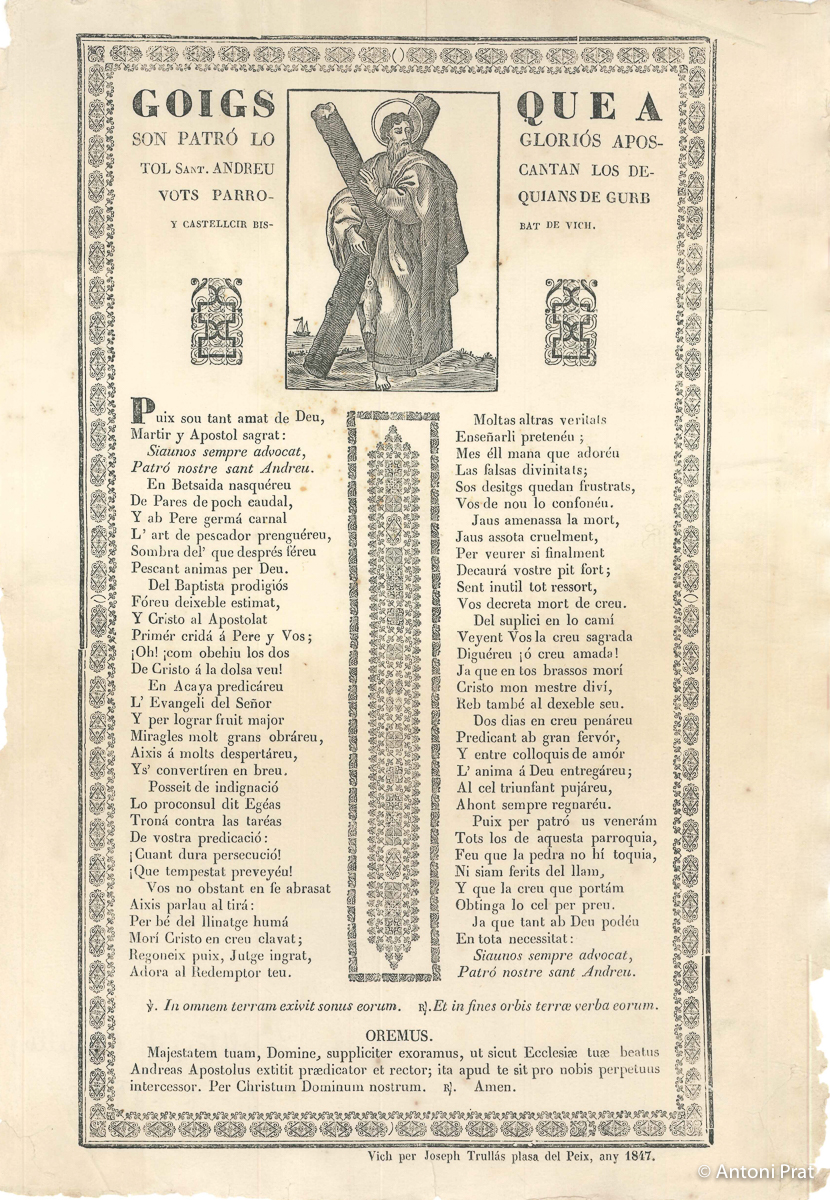 GOIGS QUE A
SON PATRÓ LO GLORIÓS APOS-
TOL SANT. ANDREU CANTAN LOS DE-
VOTS PARRO- QUIANS DE GURB
Y CASTELLCIR BIS- BAT DE VICH.
Puix sou tant amat de Deu,
Martir y Apostol sagrat:
Siaunos sempre advocat,
Patró nostre sant Andreu.
En Betsaida nasquéreu
De Pares de poch caudal,
Y ab Pere germá carnal
L' art de pescador prenguéreu,
Sombra del' que després féreu
Pescant animas per Deu.
Del Baptista prodigiós
Fóreu deixeble estimat,
Y Cristo al Apostolat
Primér cridá á Pere y Vos;
¡Oh! ¡com obehiu los dos
De Cristo á la dolsa veu!
En Acaya predicáreu
L' Evangeli del Señor
Y per lograr fruit major
Miragles molt grans obráreu,
Aixis á molts despertáreu,
Ys' convertíren en breu.
Posseit de indignació
Lo proconsul dit Egéas
Troná contra las taréas
De vostra predicació:
¡Cuant dura persecució!
¡Que tempestat preveyéu!
Vos no obstant en fe abrasat
Aixis parlau al tirá:
Per bé del llinatge humá
Morí Cristo en creu clavat;
Regoneix puix, Jutge ingrat,
Adora al Redemptor teu.
Moltas altras veritats
Enseñarli pretenéu;
Mes éll mana que adoréu
Las falsas divinitats;
Sos desitgs quedan frustrats,
Vos de nou lo confonéu.
Jaus amenassa la mort,
Jaus assota cruelment,
Per veurer si finalment
Decaurá vostre pit fort;
Sent inutil tot ressort,
Vos decreta mort de creu.
Del suplici en lo camí
Veyent Vos la creu sagrada
Diguéreu ¡ó creu amada!
Ja que en tos brassos morí
Cristo mon mestre diví,
Reb també al dexeble seu.
Dos dias en creu penáreu
Predicant ab gran fervór,
Y entre colloquis de amór
L' anima á Deu entregáreu;
Al cel triunfant pujáreu,
Ahont sempre regnaréu.
Puix per patró us venerám
Tots los de aquesta parroquia,
Feu que la pedra no hí toquia,
Ni siam ferits del llam,
Y que la creu que portám
Obtinga lo cel per preu.
Ja que tant ab Deu podéu
En tota necessitat:
Siaunos sempre advocat,
Patró nostre sant Andreu.
℣. In omnem terram exivit sonus eorum. ℟. Et in fines orbis terræ verba eorum.
OREMUS.
Majestatem tuam, Domine, suppliciter exoramus, ut sicut Ecclesiæ tuæ beatus
Andreas Apostolus extitit prædicator et rector; ita apud te sit pro nobis perpetuus
intercessor. Per Christum Dominum nostrum. ℟. Amen.
Vich per Joseph Trullás plasa del Peix, any 1847.
© Antoni Prat